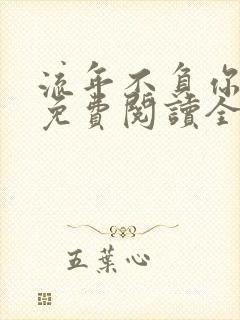 流年不負你
免費閱讀全
五葉心